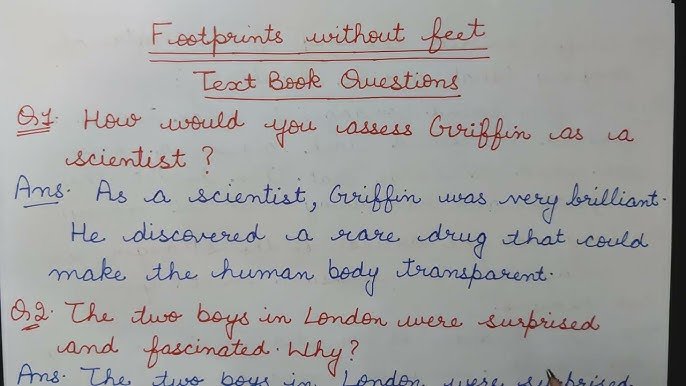 Footprints without feet
Text Book Questions
Q1. How would you assess Griffin as a
scientist?
Ans. As a scientist, Griffin was very brilliant.
He discovered a rare drug that could
make the human body transparent.
Q2. The two boys in London were surprised
and fascinated. Why?
Ans. The two boys in London were surprised